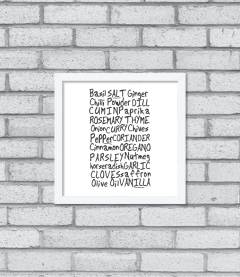 Basil SALT Ginger
Chilli Powder DILL
CUMIN Paprika
ROSEMARY THYME
Onion CURRY Chives
Pepper CORIANDER
Cinnamon OREGANO
PARSLEY Nutmeg
horseradish GARLIC
CLOVES saffron
Olive Oil VANILLA